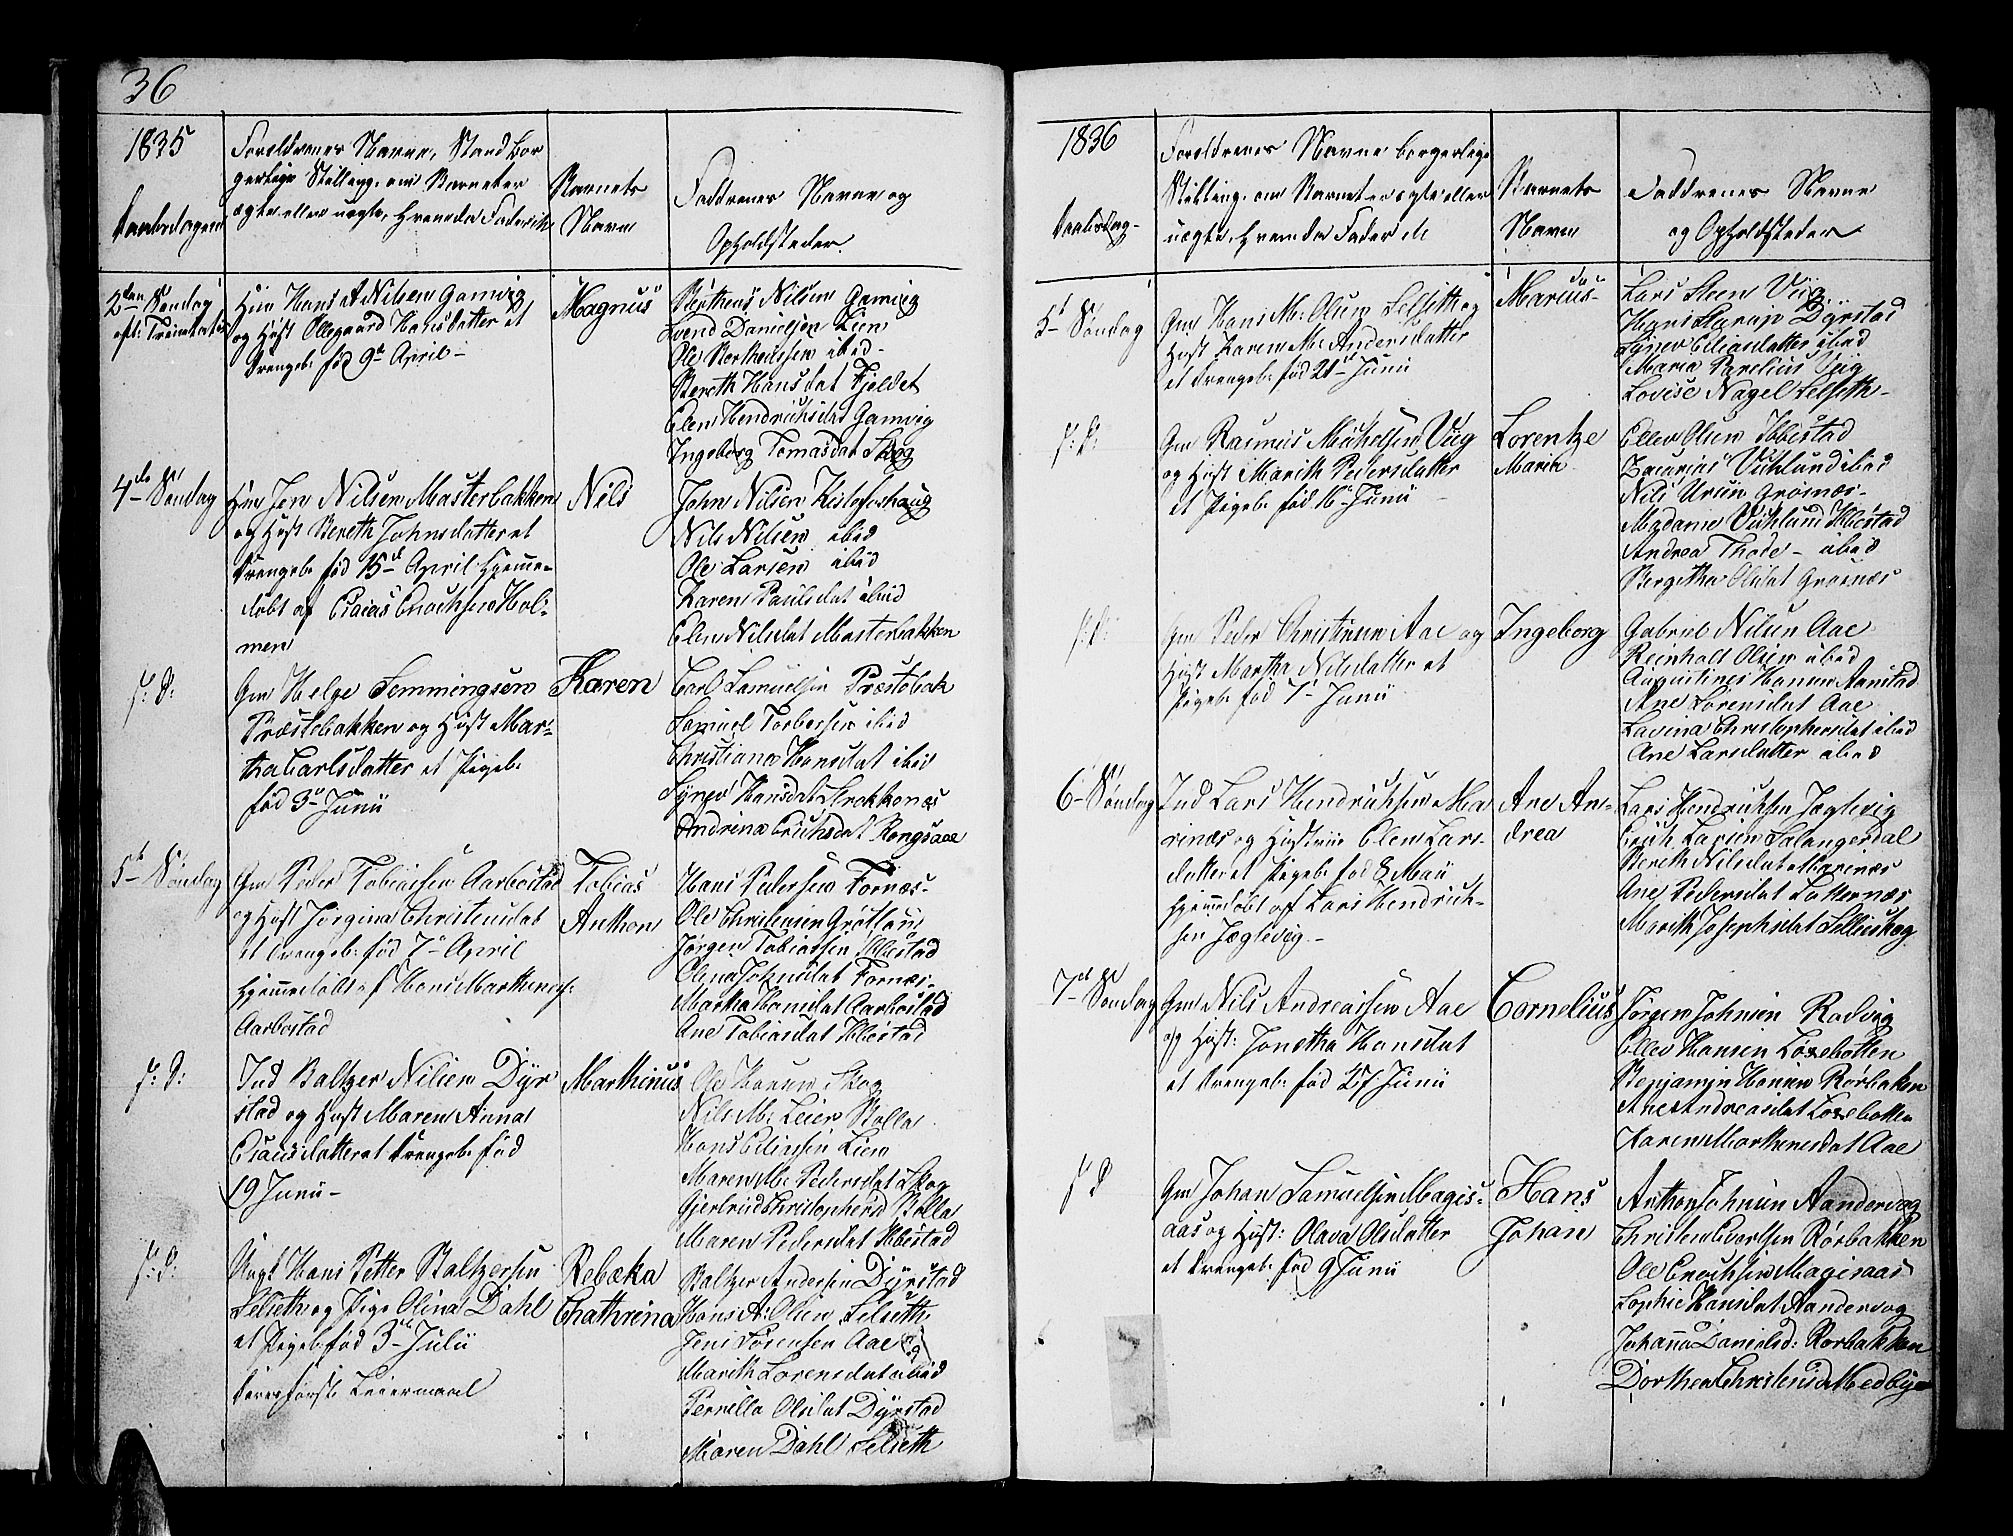 36
1835
Daabsdagen
Foreldrenes Navne, Stand bor
gerlige Stilling, om Barnet er
ægte eller uægte, hvem da Fader til
Barnets
Navn
Faddrenes Navne og
Opholdsteder.
2den Søndag
eft: Treinitatis
Huu Hans A Nilsen Gamvig
og Hust Ollegaard Hansdatter et
Drengeb. fød 9de April –
Magnus
Morthens Nilsen Gamvig
Svend Danielsen Lien
Ole Morthenssen ibid –
Bereth Hansdat Fjeldet
Elen Hendrichsdat Gamvig
Ingeborg Tomasdat Skog
4de Søndag
Huu Jon Nilsen Masterbakken
og Hust Bereth Johnsdatter et
Drengeb. fød 15de April Hjemme-
døbt af Esaias Enochsen Hol-
men
Nils
John Nilsen Kistefoshaug
Nils Nilsen ibid
Ole Larsen ibid
Karen Paulsdat ibid
Elen Nilsdat Masterbakken
f: D:
Gm Helge Semmingsen
Præstebakken og Hust Mar-
tha Carlsdatter et Pigeb.
fød 3de Junii
Karen
Carl Samuelsen Præstebak
Samuel Torbersen ibid
Christiana Hansdat ibid
Synev Hansdat Krokknæs
Andrina Erichsdat Rongsaae
5te Søndag
Gm Peder Tobiassen Aarbostad
og Hust Jørgina Christensdat
et Drengeb. fød 7de April
Hjemmedøbt af Hans Marthines:
Aarbostad
Tobias
Anthon
Hans Pedersen Fornæs-
Ole Christensen Grøtland
Jørgen Tobiassen Ibbestad
Olina Johnsdat Fornæs-
Martha Hansdat Aarbostad
Ane Tobiasdat Ibbestad
f: D:
Ind Baltzer Nilsen Dyr
stad og Hust Maren Anna
Esaiasdatter et Drengeb. fød
19 Junii –
Marthinus
Ole Hansen Skog
Nils M: Leier Rolla
Hans Eliassen Lien
Maren M: Pedersdat Skog
Gjertrud Christophersd Rolla
Maren Pedersdat Ibbestad
f: D:
Ungk Hans Petter Baltzersen
Selseth og Pige Olina Dahl
et Pigeb. fød 3de Julii
Deres første Leiermaal
Rebæka
Chathrina
Baltzer Andersen Dyrstad
Hans A: Olsen Selseth
Jens Sørensen Aae
Marith Lorensdat ibid
Pernella Olsdat Dyrstad
Maren Dahl Selseth
1836
Daabsdag-
Foreldrenes Navne borgerlige
Stilling, om Barnet er ægte eller
uægte, hvem da Fader til
Barnets
Navn
Faddrenes Navne
og Opholdsteder
5te Søndag
Gm Hans M: Olsen Selseth og
Hust Karen M: Andersdatter
et Drengeb. fød 21de Junii
Marius-
Lars Steen Viig
Hans Starup Dyrstad
Synev Eliasdatter ibid
Maria Parelius Viig
Lovise Nagel Selseth-
f: D:
Gm Rasmus Michelsen Viig
og Hust Marith Pedersdatter
et Pigeb. fød 16de Junii
Lorentze
Maria
Ellev Olsen Ibbestad
Zacarias Vichlund ibid
Nils Ursin Grøsnæs-
Madame Vichlund Ibbestad
Andrea Thode – ibid
Bergetha Olsdat Grøsnæs
f: D:
Gm Peder Christensen Aae og
Hust Martha Nilsdatter et
Pigeb. fød 7de Junii
Ingeborg
Gabriel Nilsen Aae
Reinholt Olsen ibid
Augustines Hansen Aanstad
Ane Lorensdat Aae
Lavina Christophersdat ibid
Ane Larsdatter ibid
6te Søndag
Ind Lars Hendrichsen Ma
rinæs og Hustrue Elen Lars-
datter et Pigeb. fød 8 Maii
Hjemmedøbt aff Lars Hendrich-
sen Jæglevig. –
Ane An-
drea
Lars Hendrichsen Jæglevig
Erich Larsen Salangerdal
Bereth Nilsdat Marinæs
Ane Pedersdat Laternæs
Marith Josephsdat Selliskog
7de Søndag
Gm Nils Andreassen Aae
og Hust: Jonetha Hansdat
et Drengeb. fød 25 Junii
Cornelius
Jørgen Johnsen Rodvig
Ellev Hansen Løxebotten
Benjamin Hansen Rørbaken
Ane Andreasdat Løxebotten
Karen Marthensdat Aae
f: D
Gm Johan Samuelsen Magis-
aas og Hust: Olava Olsdatter
et Drengeb. fød 9 Junii
Hans
Johan
Anthon Johnsen Aandervog
Christen Evartsen Rørbakken
Ole Enochsen Magisaas
Sophie Hansdat Aandervog
Johanna Danielsd: Rørbakken
Dorthea Christensd Medbye